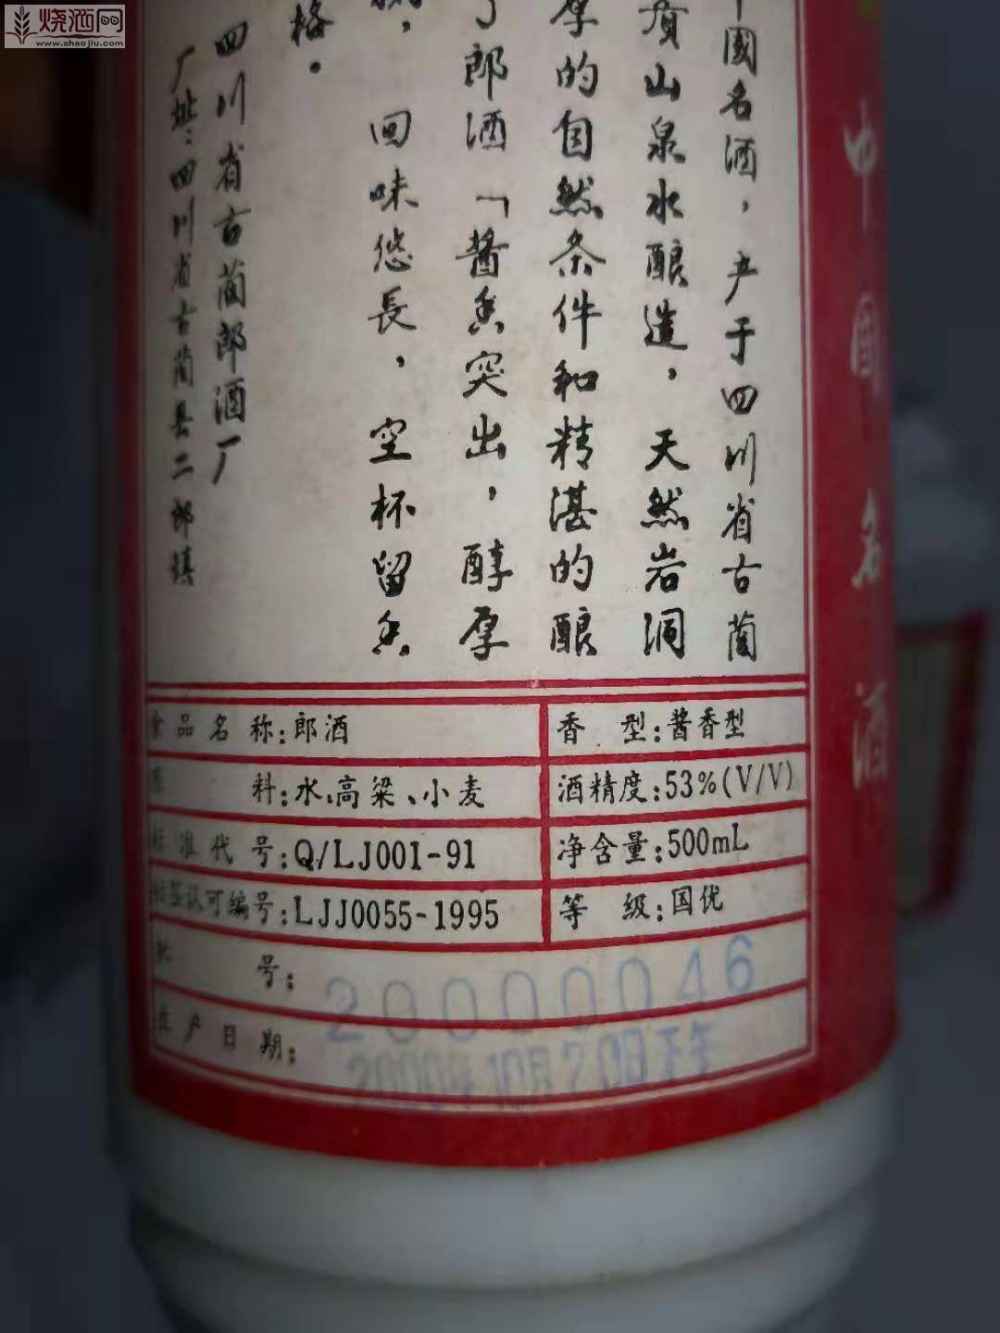 烧酒网
www.shaojiu.com
國名酒，产于四川省古蔺
山泉水酿造，天然岩洞
厚的自然条件和精湛的酿
了郎酒「醬香突出，醇厚
回味悠長，空杯留香
格。
四川省古蔺郎酒厂
厂址：四川省古蔺县二郎镇
中国名酒
食品名称：郎酒
香型：酱香型
料：水、高粱、小麦
酒精度：53%(V/V)
标准代号：Q/LJ001-91
净含量：500mL
标签认可编号：LJJ0055-1995
等级：国优
批号：20000046
生产日期：2000年10月20日